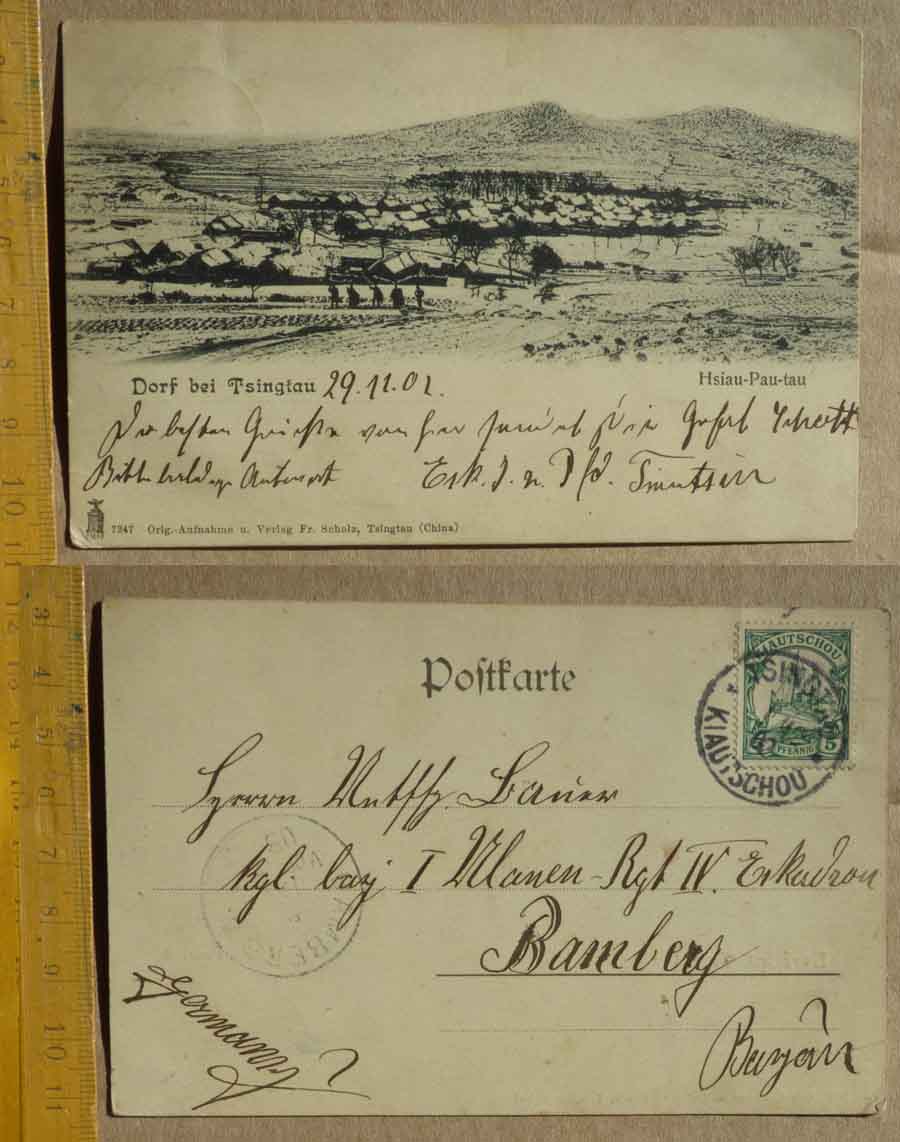 Dorf bei Tsingtau 29.11.01.
Hsiau-Pau-tau
besten Grüße von hier sendet Gefrt
Bitte baldige Antwort Esk. J. n. Pf. Tientsin
7247 Orig.-Aufnahme u. Verlag Fr. Scholz, Tsingtau (China)
Postkarte
KIAUTSCHOU
5 PFENNIG
TSINGTAU
KIAUTSCHOU
Herrn Untffz. Bauer
kgl. bay I Ulanen-Rgt IV. Eskadron
BAMBERG
Bamberg
Germany
Bayern
3 4 5 6 7 8 9 10 11